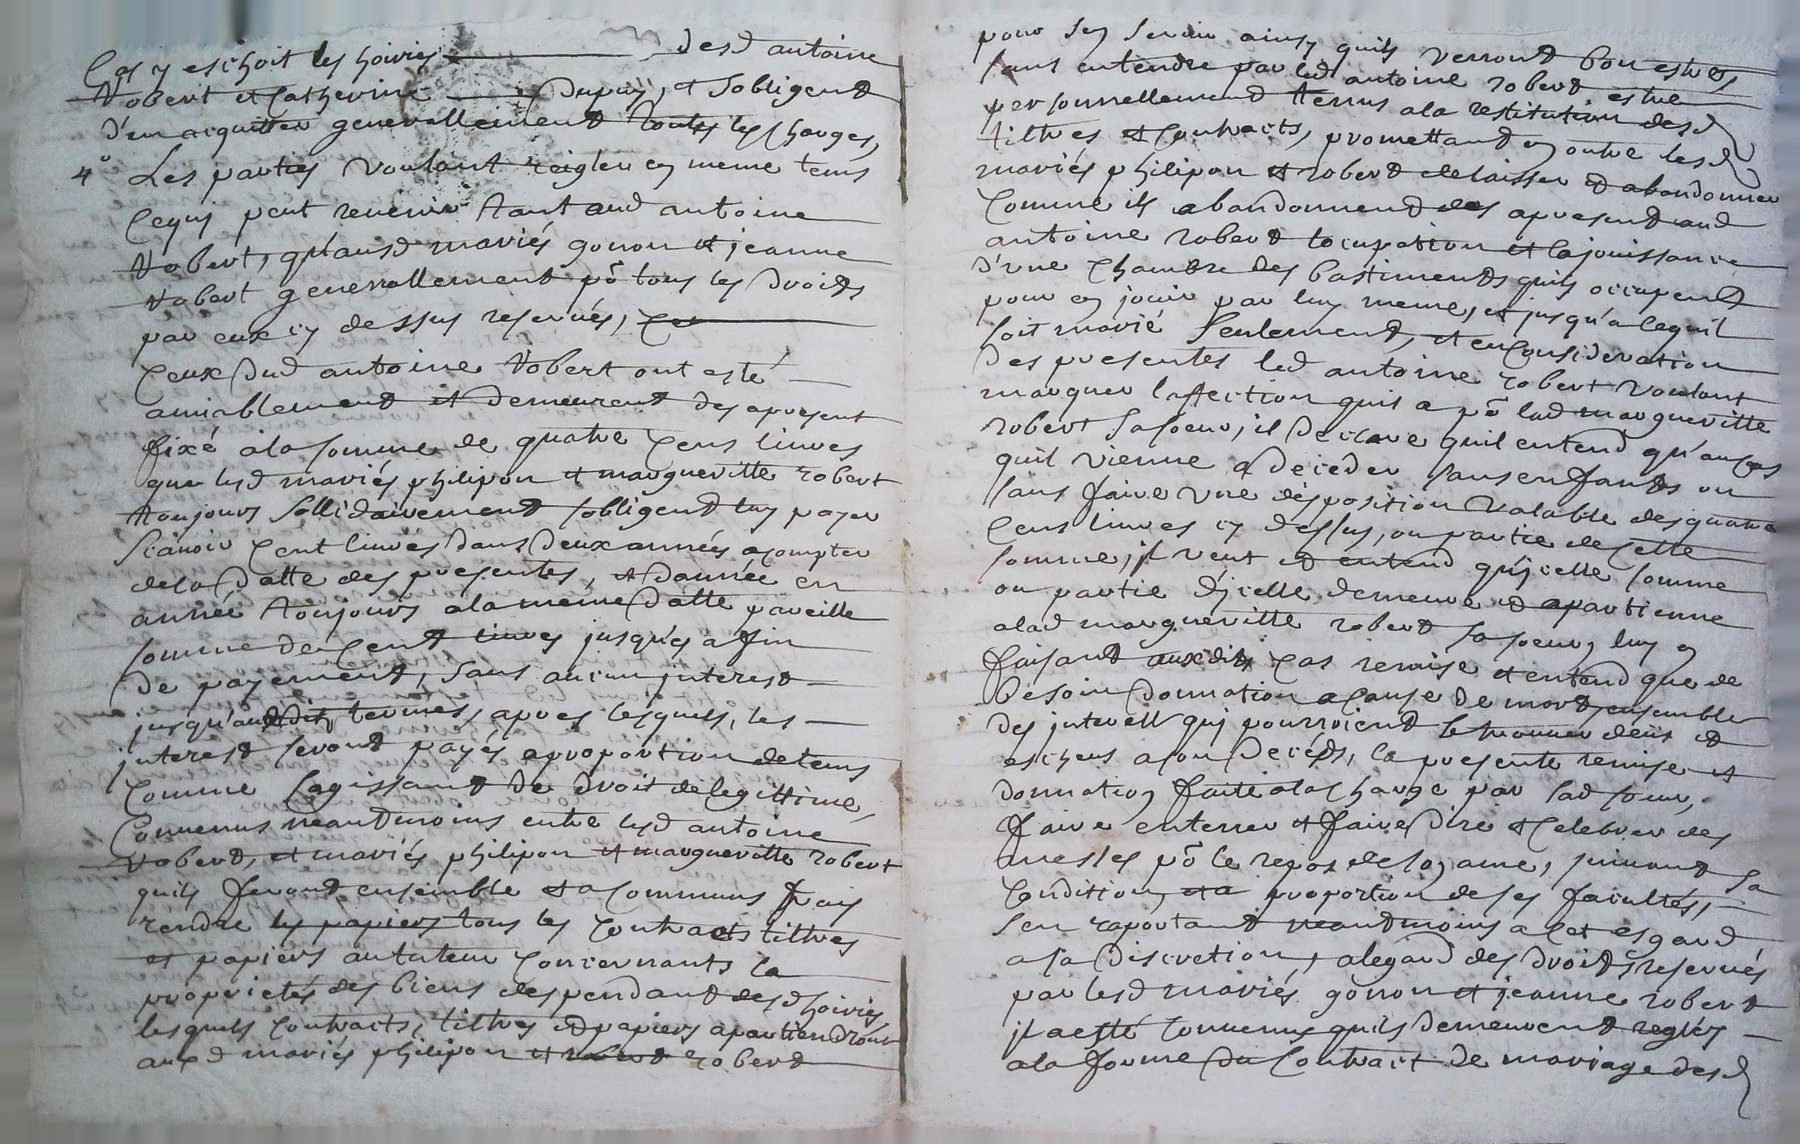 Cas y eschoit les hoiries desd antoine
Robert et Catherine Dupuy, et sobligent
d'en acquitter generallement toutes les Charges,
4° Les parties voulant reigler en meme tems
Cequi peut revenir tant aud antoine
Robert, qu'ausd mariés gonon et jeanne
Robert generallement pō tous les droits
par eux cy dessus reservés,
Ceux dud antoine Robert ont esté
amiablement et demeurent des apresent
fixé a la somme de quatre Cens livres
que lesd mariés philipon et margueritte robert
toujours sollidairement sobligent luy payer
scavoir Cent livres dans deux années a compter
de la datte des presentes, et dannée en
année toujours a la meme datte pareille
somme de Cent livres jusques a fin
de payement, sans aucun jnterest
jusqu'ausdits termes, apres lesquels, les
jnterest seront payés a proportion de tems
Comme sagissant de droit de legittime,
Convenus neantmoins entre lesd antoine
Robert, et mariés philipon et margueritte robert
quils feront ensemble et a communs frais
rendre les papiers tous les Contracts tiltres
et papiers aututeur Concernants la
proprietés des biens despendant desd hoiries
lesquels Contracts, tiltres et papiers apartiendront
auxd mariés philipon et robert
pour sen servir ainsy quils verront bon estre,
sans entendre par led antoine robert estre
personnellement tenus a la restitution desd
tiltres et Contracts, promettant en outre lesd
mariés philipon et robert delaisser et abandonner
Comme ils abandonnent des apresent aud
antoine robert locupation et la jouissance
d'une Chambre des bastiments quils occupent
pour en jouir par luy meme, et jusqu'a ce quil
soit marié seulement, et en Consideration
des presentes led antoine robert voulant
marquer laffection quil a pō lad margueritte
robert sa soeur, il declare quil entend qu'au cas
quil vienne a deceder sans enfants ou
sans faire une disposition valable des quatre
Cens livres cy dessus, ou partie de Cette
somme, il veut et entend qu'jcelle somme
ou partie d'jcelle demeure et apartienne
a lad margueritte robert sa soeur, luy en
faisant auxdits Cas remise et entend que de
besoin donnation a Cause de mort, ensemble
des jnterest qui pourroient se trouver deus et
escheus a son deceds, la presente remise et
donnation faite a la Charge par lad soeur,
faire enterrer et faire dire et Celebrer des
messes pō le repos de son ame, suivant sa
Condition et a proportion de ses facultés,
sen raportant neantmoins a cet esgard
a sa discretion, a legard des droits reservés
par lesd mariés gonon et jeanne robert
il a esté Convenus quils demeurent reglés
a la forme du Contract de mariage desd